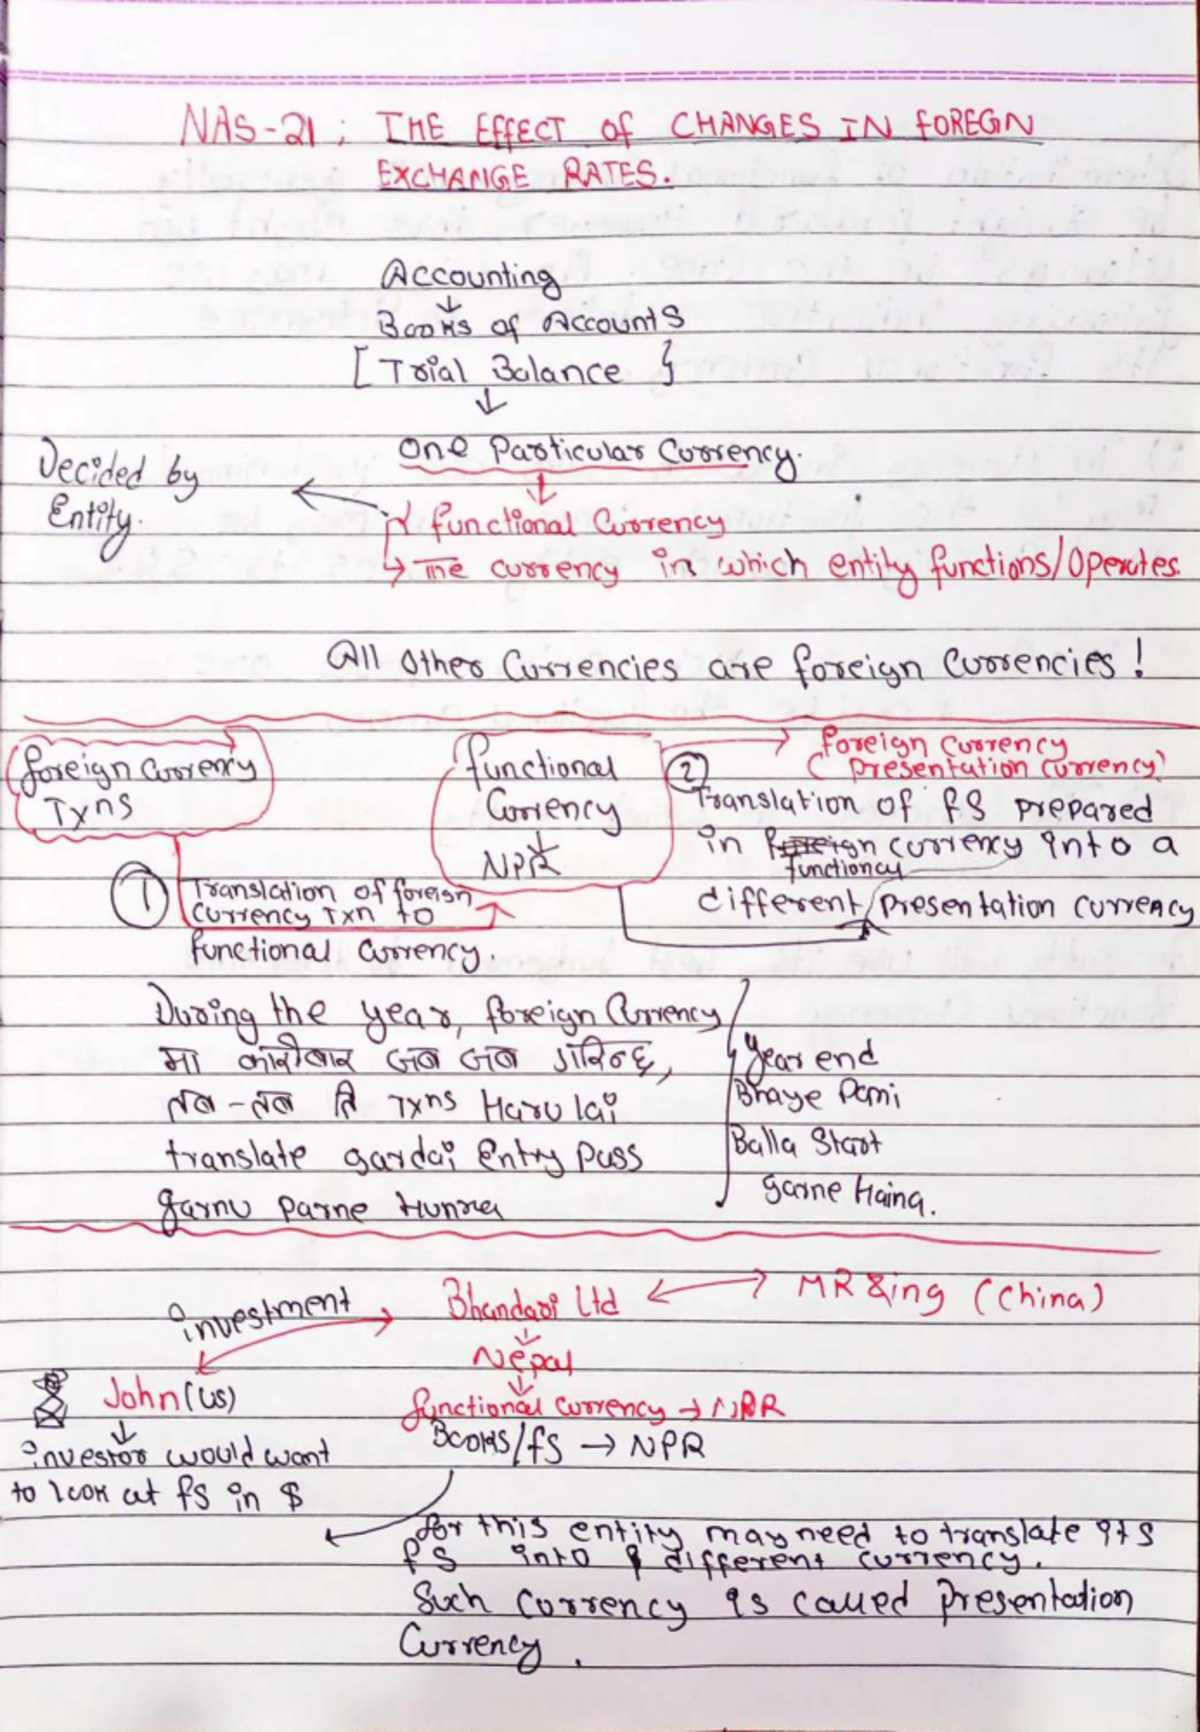 NAS-21; THE EFFECT Of CHANGES IN FOREGN
EXCHANGE RATES.
Accounting
↓
Books of Accounts
[Trial Balance }
↓
One Particular Currency.
↓
Decided by
Entity.
functional Currency
↳ The currency in which entity functions/Operates.
All other Currencies are foreign Currencies!
foreign Currency
Txns
functional
Currency
↓
NPR
foreign Currency
(Presentation Currency)
①
Translation of foreign
currency Txn to
functional Currency.
②
Translation of fS prepared
in foreign currency into a
functioncy
different presentation currency
During the year, foreign Currency
मा कारोबार जब जब गरिन्छ,
तब-तब ति Txns Haru lai
translate gardai Entry Pass
garnu Parne Hunxa
Year end
Bhaye Pami
Balla Start
garne Haina.
investment
Bhandari Ltd
MR Xing (China)
↓
Nepal
↓
John (US)
↓
functional currency → NPR
Books/fS → NPR
investor would want
to look at fS in $
for this entity may need to translate its
fS into different currency.
Such currency is called Presentation
Currency.